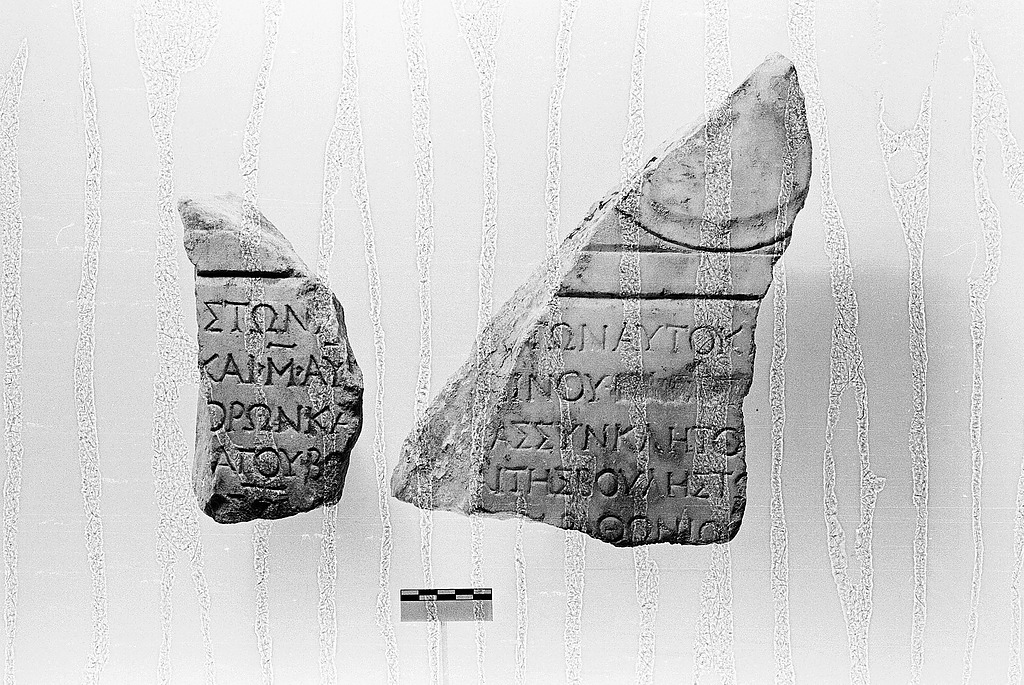 ΣΤΩΝ
ΚΑΙ·Μ·ΑΥ
ΟΡΩΝΚΑ
ΑΤΟΥ·ΒΟ
ΤΩΝΑΥΤΟΚ
ΙΝΟΥ
ΑΣΣΥΝΚΛΗΤΟ
ΠΗΣΒΟΥΛΗΣΤ
ΘΩΝΙΩ